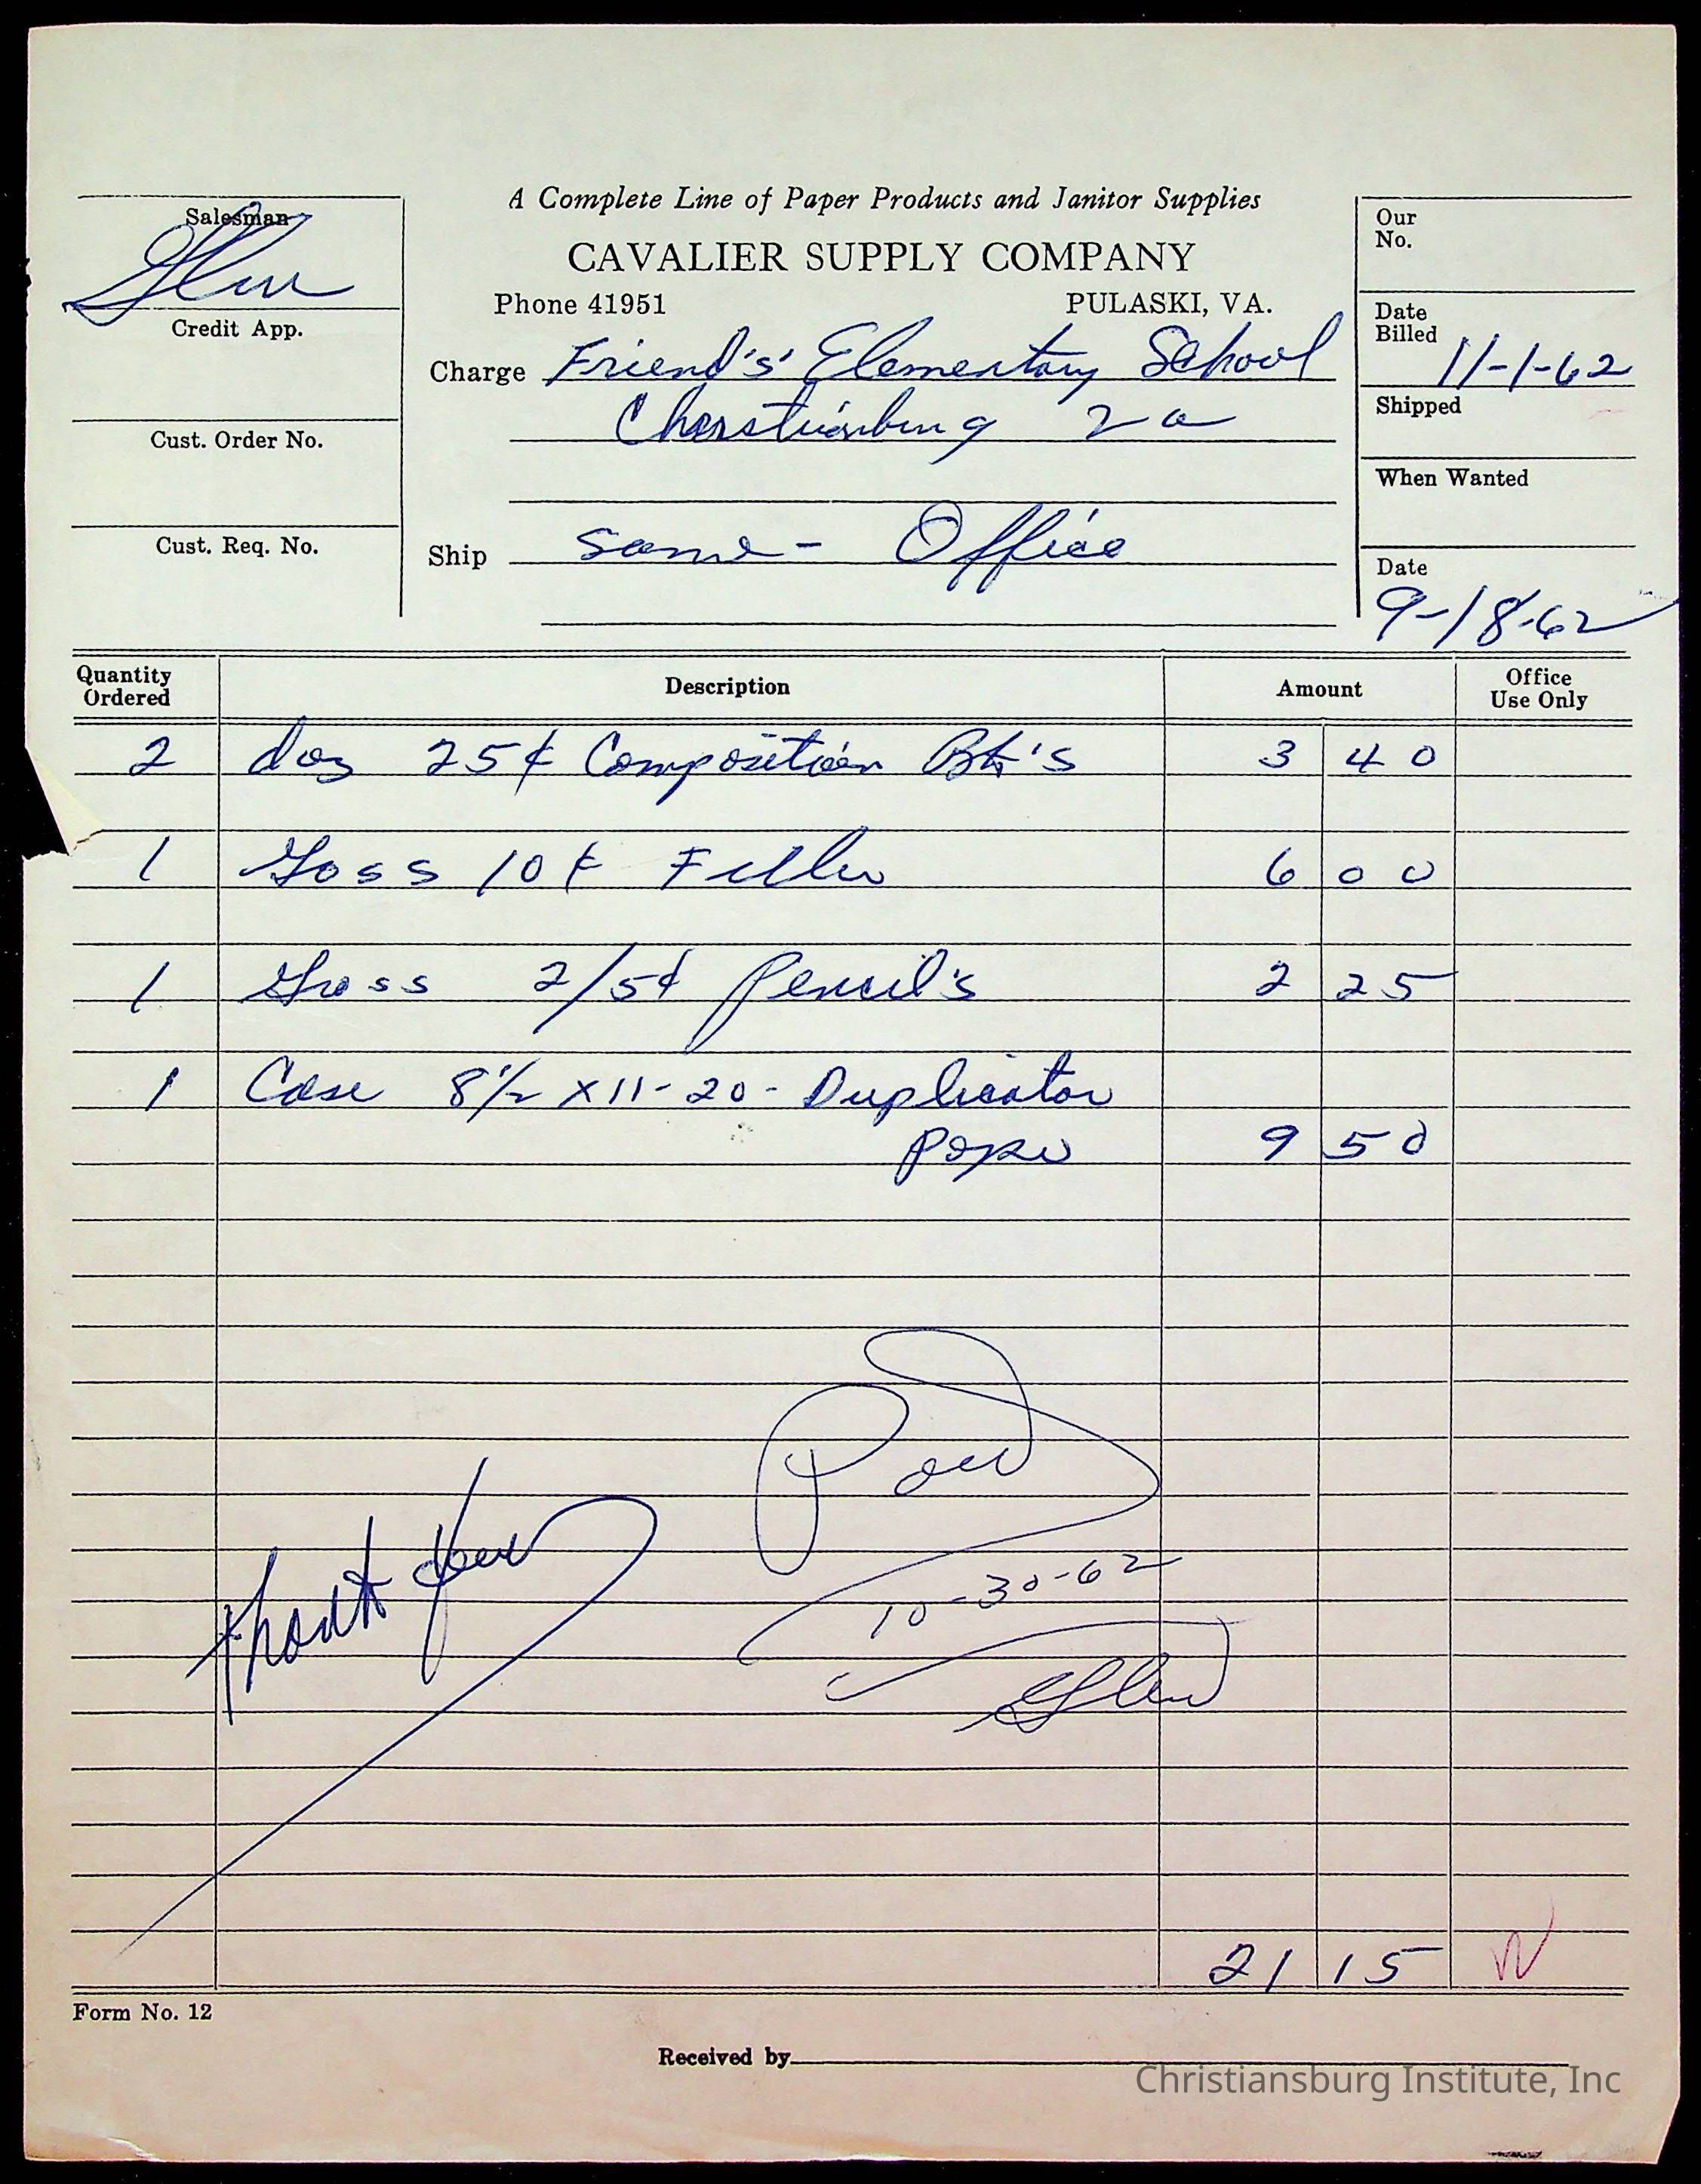 A Complete Line of Paper Products and Janitor Supplies
CAVALIER SUPPLY COMPANY
Phone 41951 PULASKI, VA.
Salesman
Glen
Credit App.
Cust. Order No.
Cust. Req. No.
Charge Friend's' Elementary School
Chirstianburg Va
Ship same - Office
Our
No.
Date
Billed
11-1-62
Shipped
When Wanted
Date
9-18-62
Quantity Ordered Description Amount Office Use Only
2 doz 25¢ Composition Bk's 3 40
1 Goss 10¢ Filler 6 00
1 Gross 2/5¢ Pencil's 2 25
1 Case 8 1/2 X 11 - 20 - Duplicator
Paper 9 50
Paid
Thank You
10-30-62
Glen
21 15
Form No. 12
Received by
Christiansburg Institute, Inc